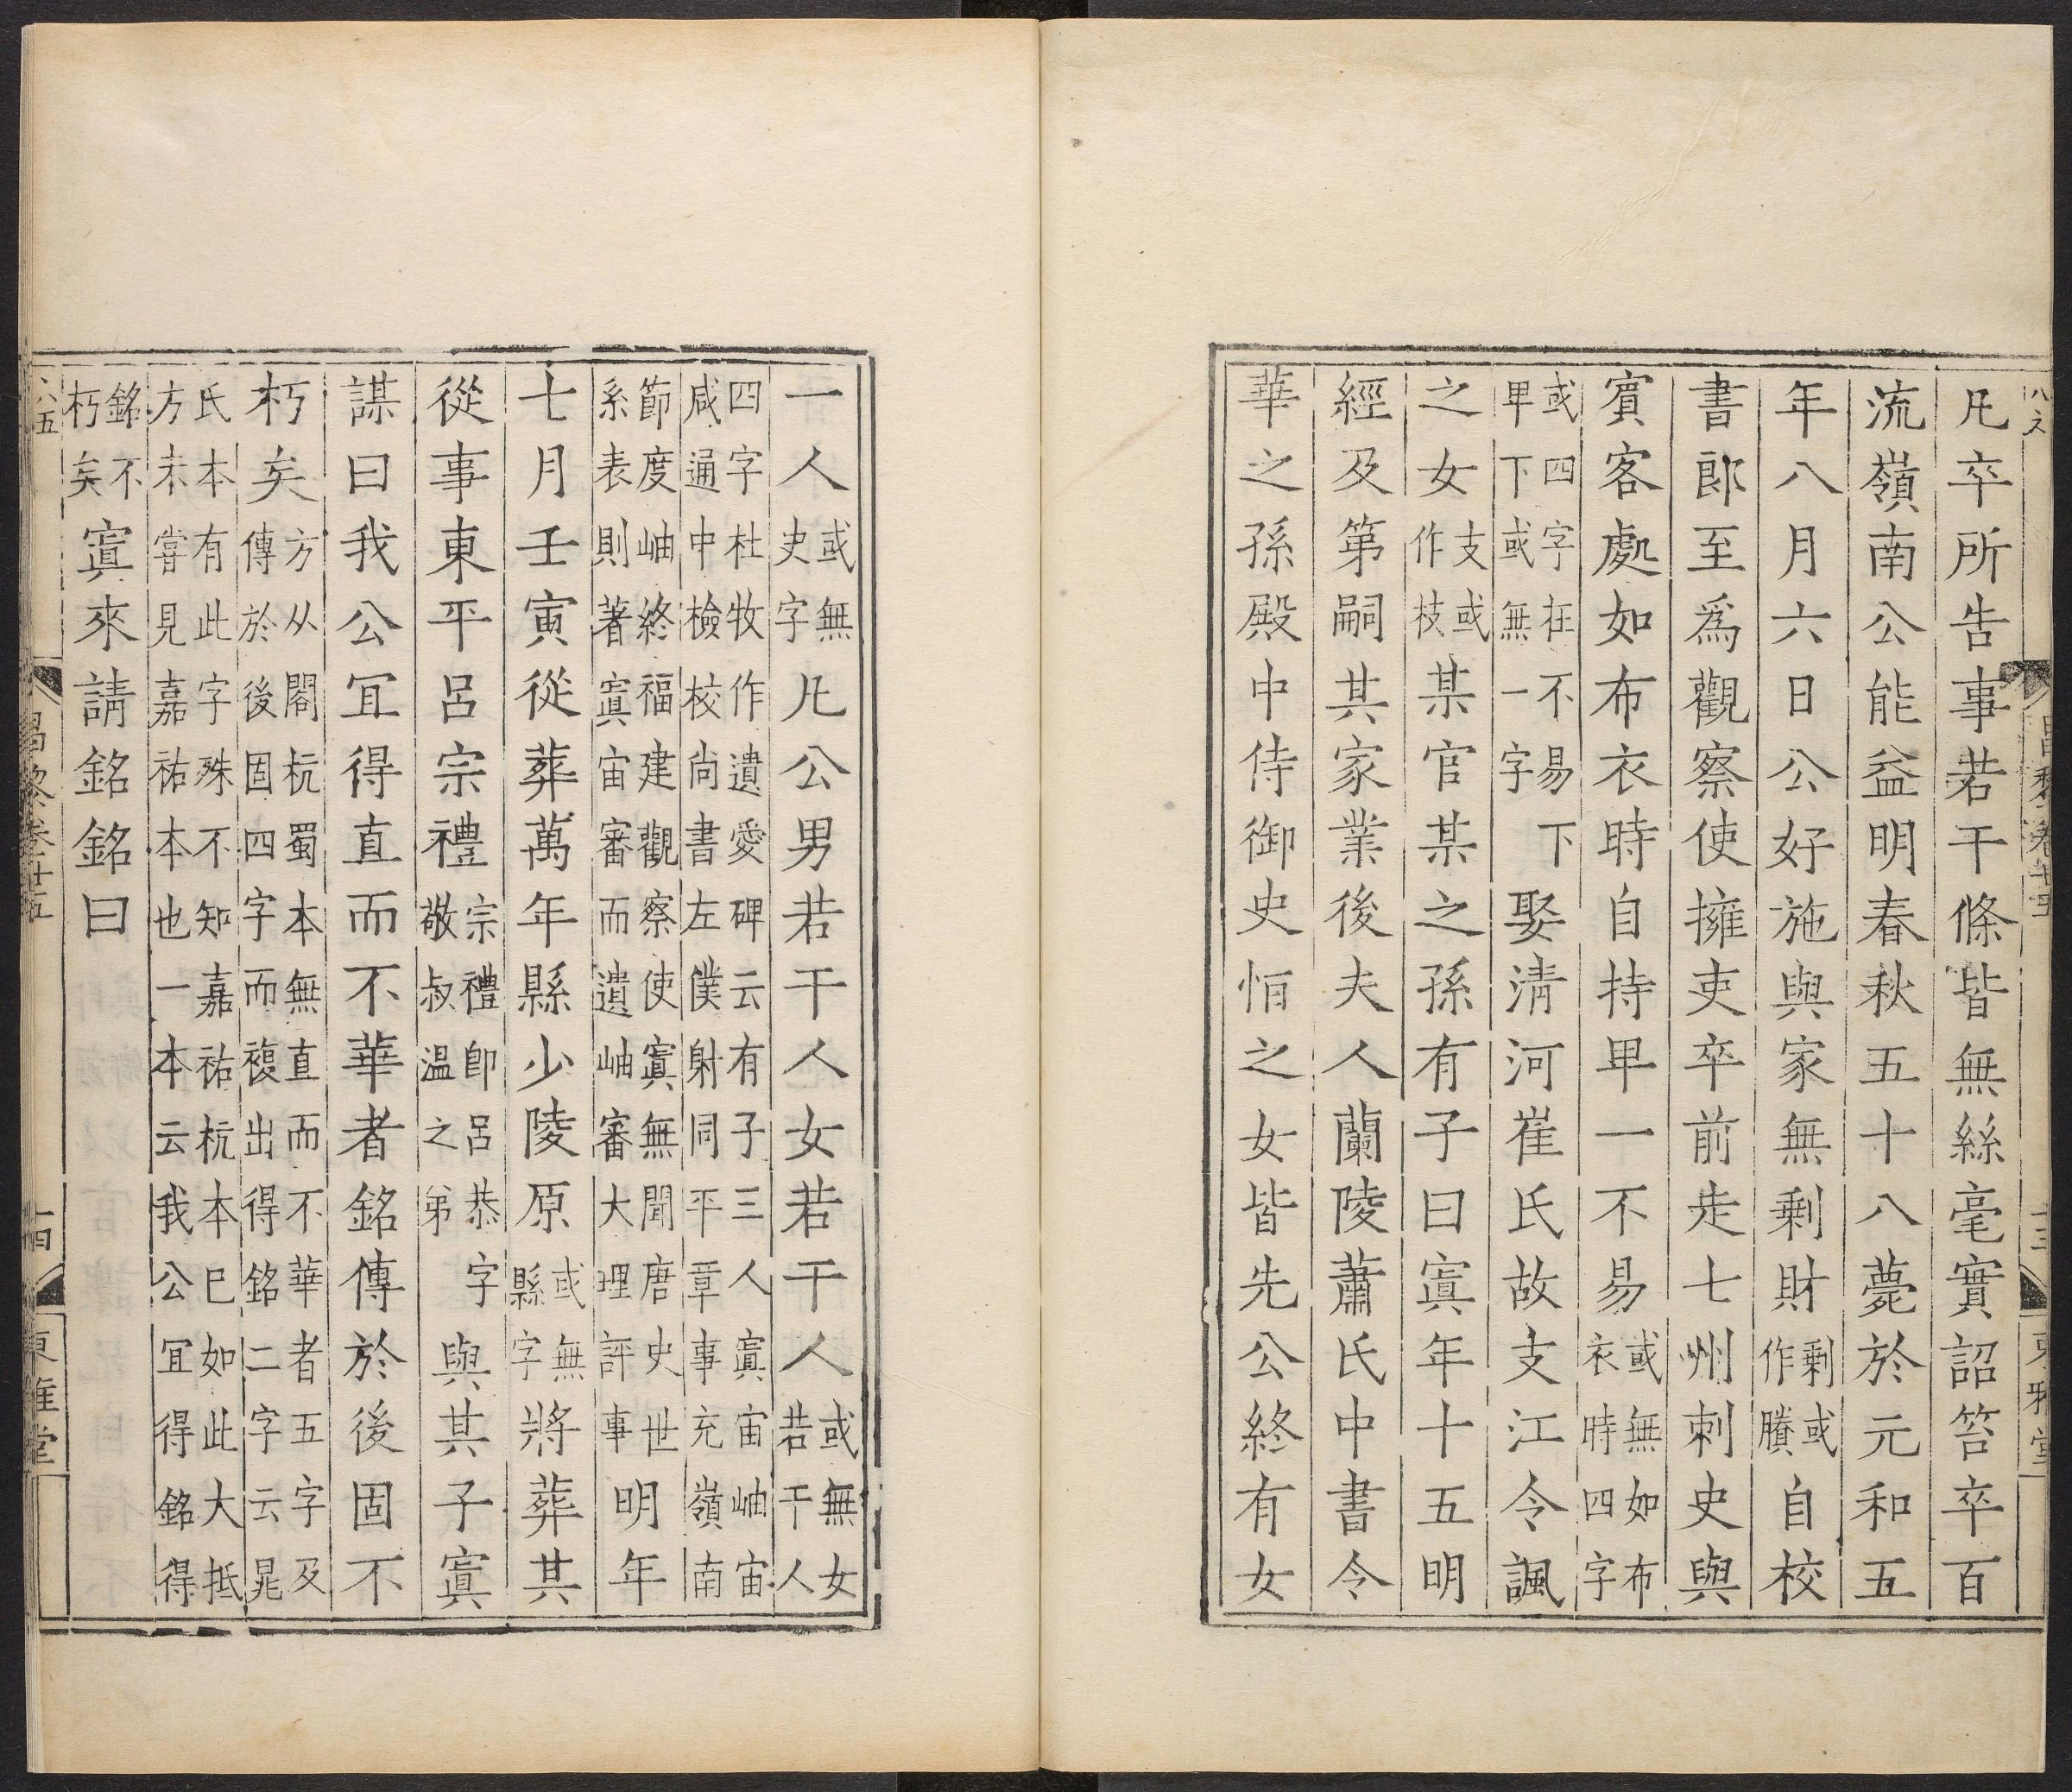 凡卒所告事若干條皆無絲毫實詔笞卒百
流嶺南公能益明春秋五十八薨於元和五
年八月六日公好施與家無剩財剩或作賸自校
書郎至爲觀察使擁吏卒前走七州刺史與
賓客處如布衣時自持卑一不易或無如布衣時四字
或四字在不易下卑下或無一字娶清河崔氏故支江令諷
之女支或作枝某官某之孫有子曰寘年十五明
經及第嗣其家業後夫人蘭陵蕭氏中書令
華之孫殿中侍御史恒之女皆先公終有女
一人或無史字凡公男若干人女若干人或無女若干人
四字杜牧作遺愛碑云有子三人寘宙岫宙咸通中檢校尚書左僕射同平章事充嶺南
節度岫終福建觀察使寘無聞唐史世系表則著寘宙審而遺岫審大理評事明年
七月壬寅從葬萬年縣少陵原或無縣字將葬其
從事東平呂宗禮宗禮卽呂恭字敬叔溫之弟與其子寘
謀曰我公宜得直而不華者銘傳於後固不
朽矣方从閣杭蜀本無直而不華者五字及傳於後固四字而複出得銘二字云晁
氏本有此字殊不知嘉祐杭本已如此大抵方未嘗見嘉祐本也一本云我公宜得銘得
銘不朽矣寘來請銘銘曰
昌黎卷廿五 十四 東雅堂